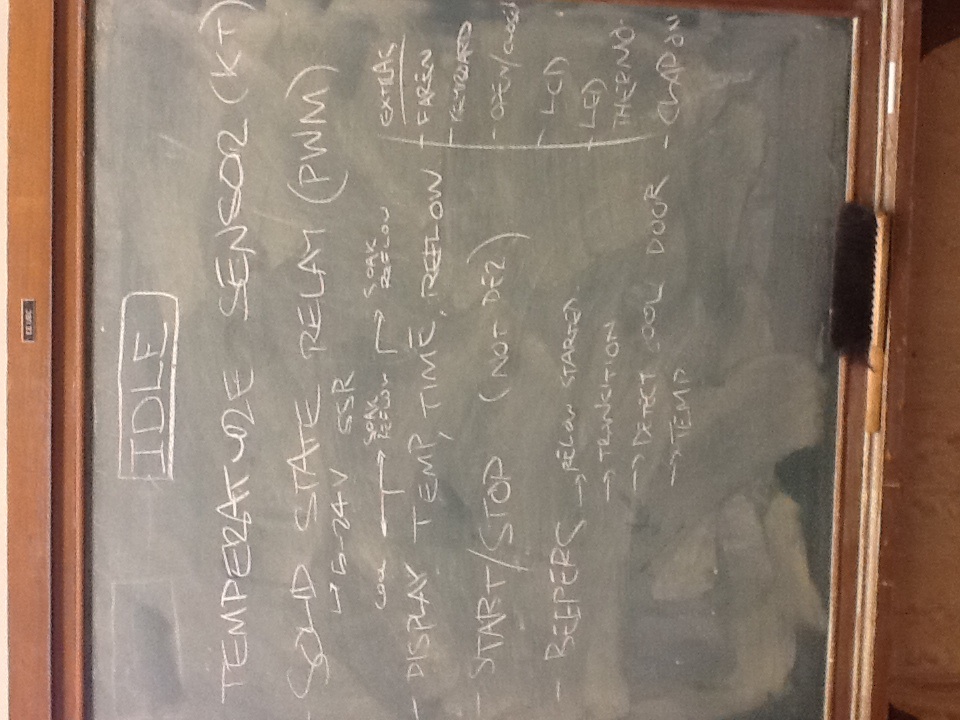 EEUBC
IDLE
TEMPERATURE SENSOR (KT)
- SOLID STATE RELAY (PWM)
→ 5-24V SSR
COOL → SOAK REFLOW → SOAK REFLOW
- DISPLAY TEMP, TIME, REFLOW
- START/STOP (NOT DE2)
- BEEPERS → REFLOW STARTED
→ TRANSITION
→ DETECT COOL DOOR
→ TEMP
EXTRAS
- FAREN
- KEYBOARD
- OPEN/CLOSE
- LCD
- LED
THERMO.
- CLAP ON